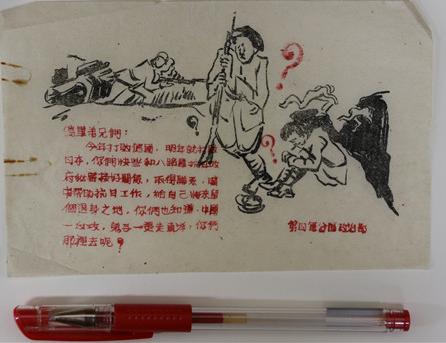 偽軍弟兄們：
今年打敗德國，明年就打敗
日本，你們快些和八路軍抗日政
府秘密接好關係，取得聯系，暗
中幫助抗日工作，給自己留下
個退身之地，你們也知道，中國
一反攻，鬼子一要走直，你們
那裡去呢？
第四軍分區政治部